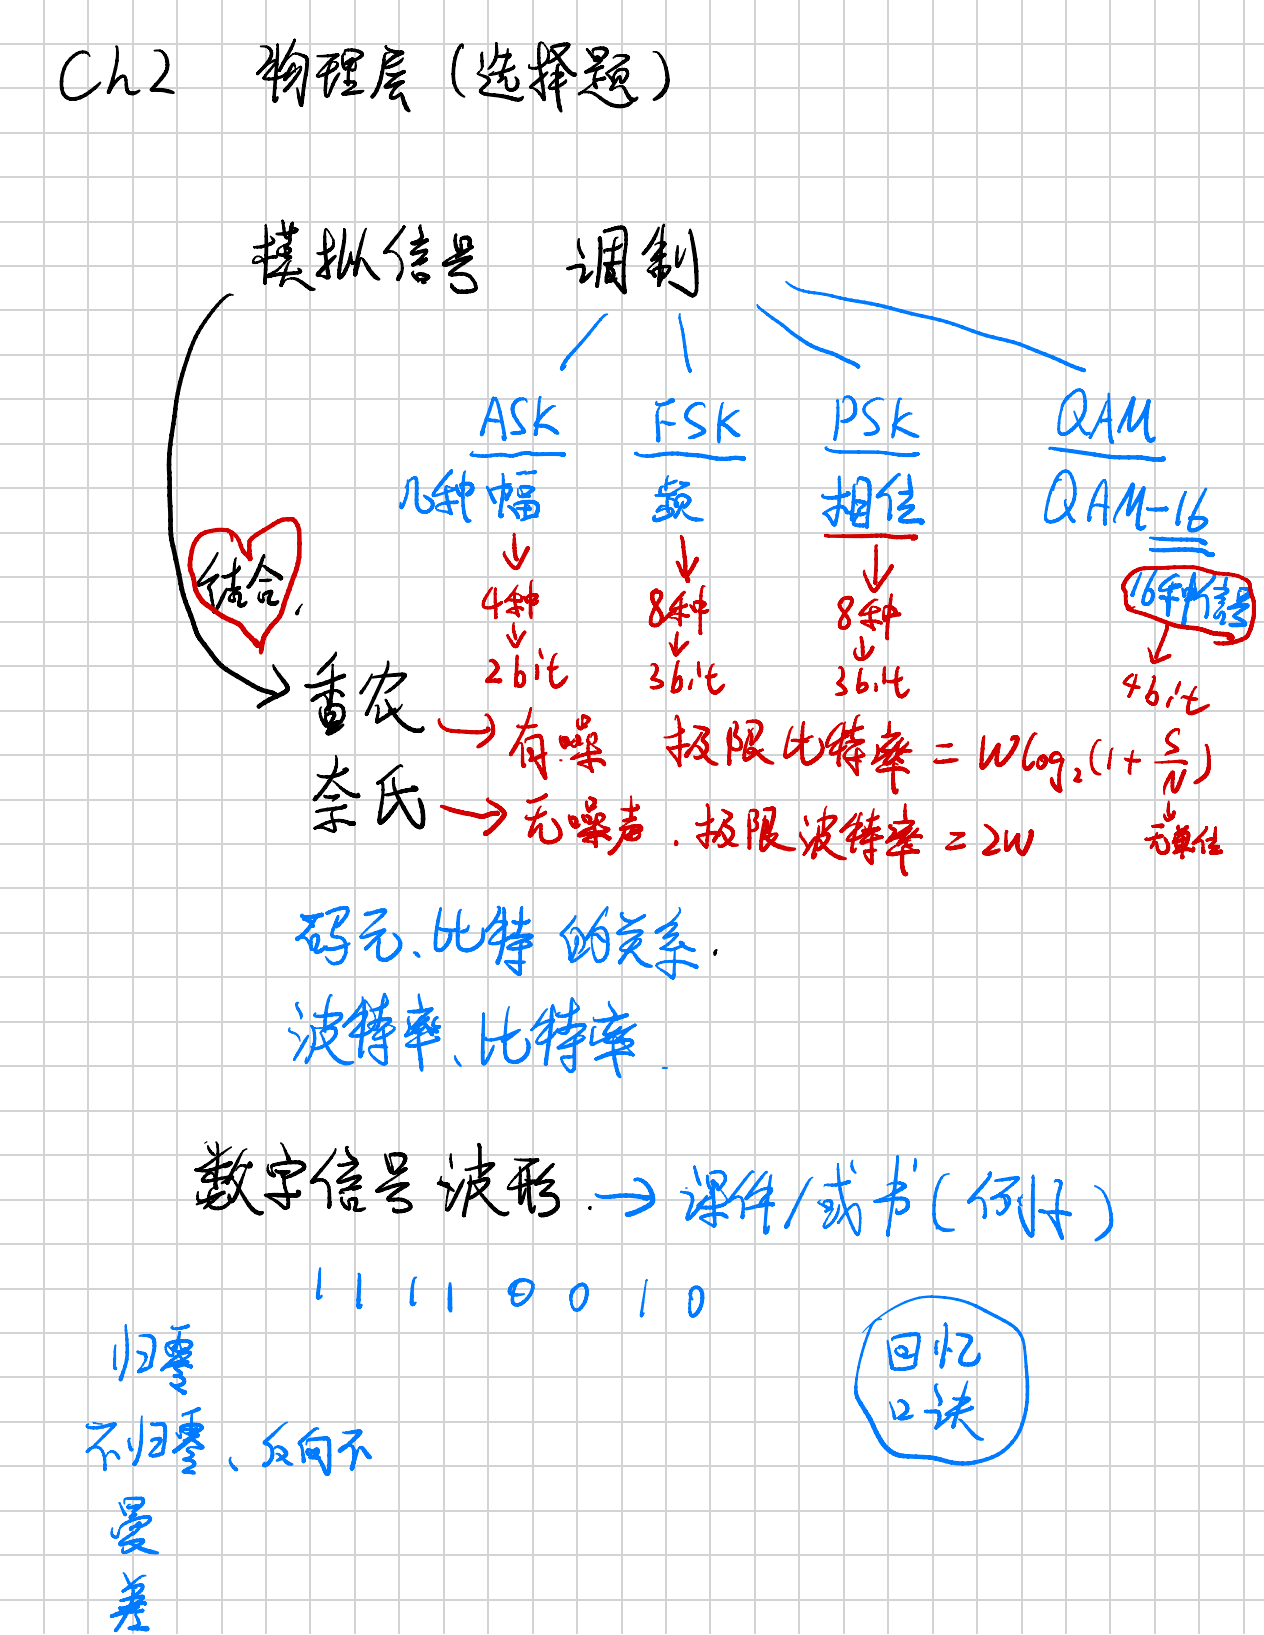 Ch2 物理层(选择题)
模拟信号 调制
ASK FSK PSK QAM
几种幅 频 相位 QAM-16
结合.
4种 8种 8种 16种信号
2bit 3bit 3bit 4bit
香农 → 有噪 极限比特率 = Wlog₂(1+S/N)
奈氏 → 无噪声.极限波特率 = 2W 无单位
码元、比特的关系.
波特率、比特率.
数字信号波形. → 课件/或书(例子)
1 1 1 1 0 0 1 0
归零
回忆
口诀
不归零、反向不
曼
差